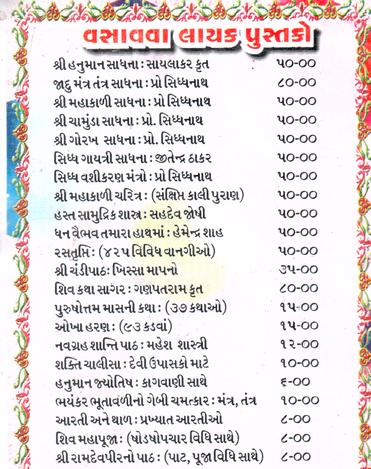 વસાવવા લાયક પુસ્તકો
શ્રી હનુમાન સાધના : સાયલાકર કૃત ૫૦-૦૦
જાદુ મંત્ર તંત્ર સાધના : પ્રો સિધ્ધનાથ ૮૦-૦૦
શ્રી મહાકાળી સાધના : પ્રો. સિધ્ધનાથ ૫૦-૦૦
શ્રી ચામુંડા સાધના : પ્રો. સિધ્ધનાથ ૫૦-૦૦
શ્રી ગોરખ સાધના : પ્રો. સિધ્ધનાથ ૫૦-૦૦
સિધ્ધ ગાયત્રી સાધના : જીતેન્દ્ર ઠાકર ૫૦-૦૦
સિધ્ધ વશીકરણ મંત્રો : પ્રો સિધ્ધનાથ ૫૦-૦૦
શ્રી મહાકાળી ચરિત્ર : (સંક્ષિપ્ત કાલી પુરાણ) ૫૦-૦૦
હસ્ત સામુદ્રિક શાસ્ત્ર : સહદેવ જોષી ૫૦-૦૦
ધન વૈભવ તમારા હાથમાં : હેમેન્દ્ર શાહ ૫૦-૦૦
રસતૃપ્તિ : (૪૨૫ વિવિધ વાનગીઓ) ૫૦-૦૦
શ્રી ચંડીપાઠ : ખિસ્સા માપનો ૩૫-૦૦
શિવ કથા સાગર : ગણપતરામ કૃત ૮૦-૦૦
પુરુષોત્તમ માસની કથા : (૩૭ કથાઓ) ૧૫-૦૦
ઓખા હરણ : (૯૩ કડવાં) ૧૫-૦૦
નવગ્રહ શાન્તિ પાઠ : મહેશ શાસ્ત્રી ૧૨-૦૦
શક્તિ ચાલીસા : દેવી ઉપાસકો માટે ૧૦-૦૦
હનુમાન જ્યોતિષ : કાગવાણી સાથે ૬-૦૦
ભયંકર ભૂતાવળીનો ગેબી ચમત્કાર : મંત્ર, તંત્ર ૧૦-૦૦
આરતી અને થાળ : પ્રખ્યાત આરતીઓ ૮-૦૦
શિવ મહાપૂજા : (ષોડષોપચાર વિધિ સાથે) ૮-૦૦
શ્રી રામદેવપિરનો પાઠ : (પાટ, પૂજા વિધિ સાથે) ૮-૦૦